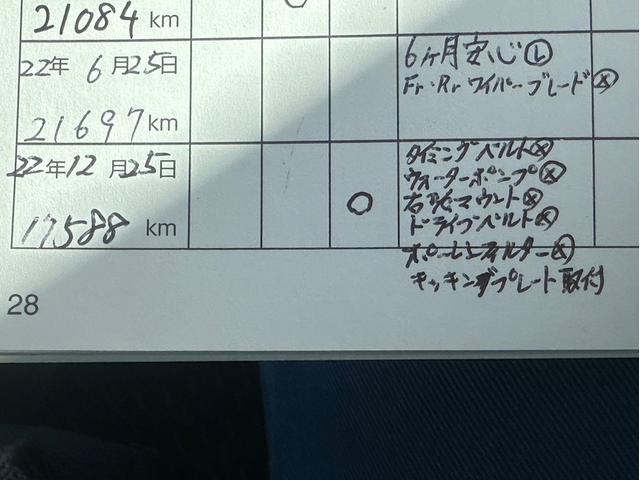 21084 km
22年 6月25日
6ヶ月安心Ⓛ
Fr・Rr ワイパーブレードⓧ
21697 km
22年12月25日
タイミングベルトⓧ
ウォーターポンプⓧ
マウントⓧ
ドライブベルトⓧ
17588 km
フィルターⓧ
キッキングプレート取付
28